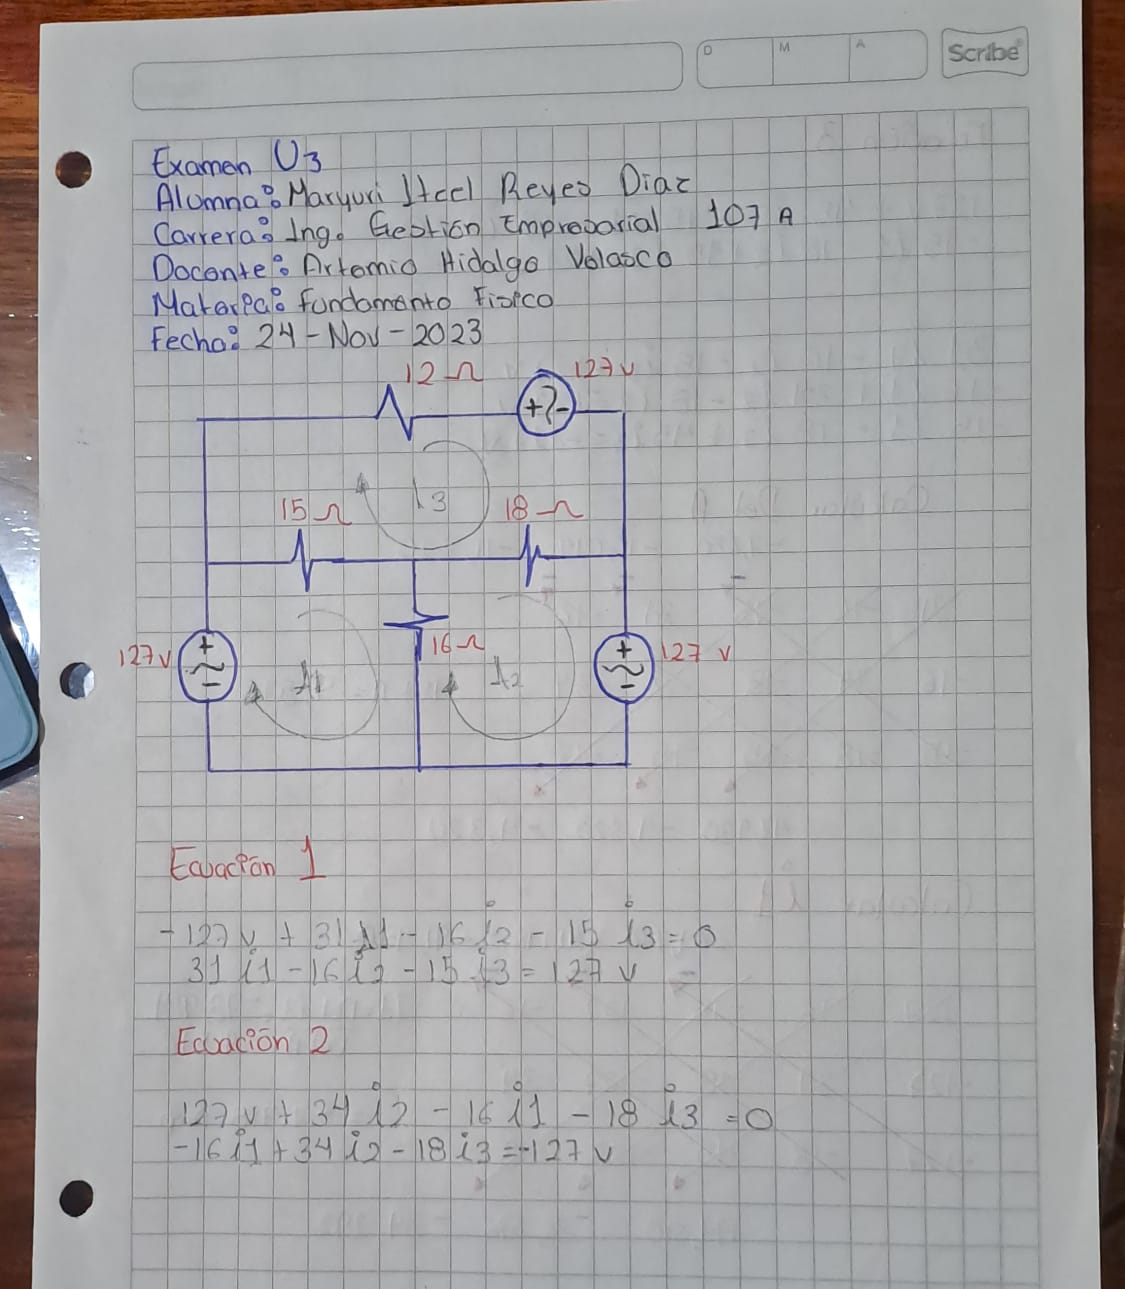 D M A Scribe
Examen U3
Alumna: Maryuri Itcel Reyes Diaz
Carrera: Ing. Gestión Empresarial 107 A
Docente: Artemio Hidalgo Velasco
Materia: Fundamento Fisico
Fecha: 24-Nov-2023
12 Ω 127 v
+ -
i3
15 Ω 18 Ω
127 v + - i1 16 Ω i2 + - 127 v
Ecuación 1
-127 v + 31 i1 - 16 i2 - 15 i3 = 0
31 i1 - 16 i2 - 15 i3 = 127 v
Ecuación 2
127 v + 34 i2 - 16 i1 - 18 i3 = 0
-16 i1 + 34 i2 - 18 i3 = -127 v